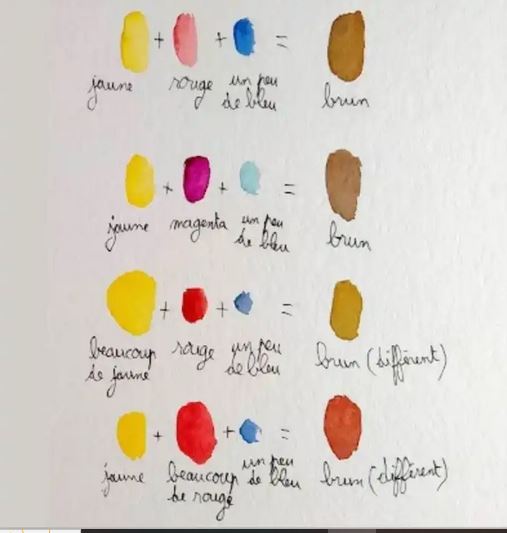 + + =
jaune rouge un peu brun
de bleu
+ + =
jaune magenta un peu brun
de bleu
+ + =
beaucoup rouge un peu brun (différent)
de jaune de bleu
+ + =
jaune beaucoup un peu brun (différent)
de rouge de bleu